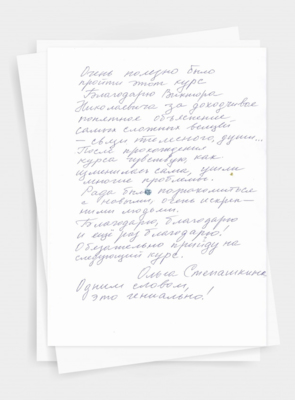 Очень полезно было
пройти этот курс
Благодарю Виктора
Николаевича за доходчивое
понятное объяснение
самых сложных вещей
– связи телесного, души...
После прохождения
курса чувствую, как
изменилась сама, ушли
многие проблемы.
Рада была познакомиться
с новыми, очень искрен-
ними людьми.
Благодарю, благодарю
и ещё раз благодарю!
Обязательно приеду на
следующий курс.
Ольга Степашкина
Одним словом,
это гениально!